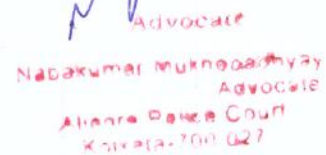 Advocate
Nabakumar Mukhopadhyay
Advocate
Alipore Police Court
Kolkata-700 027